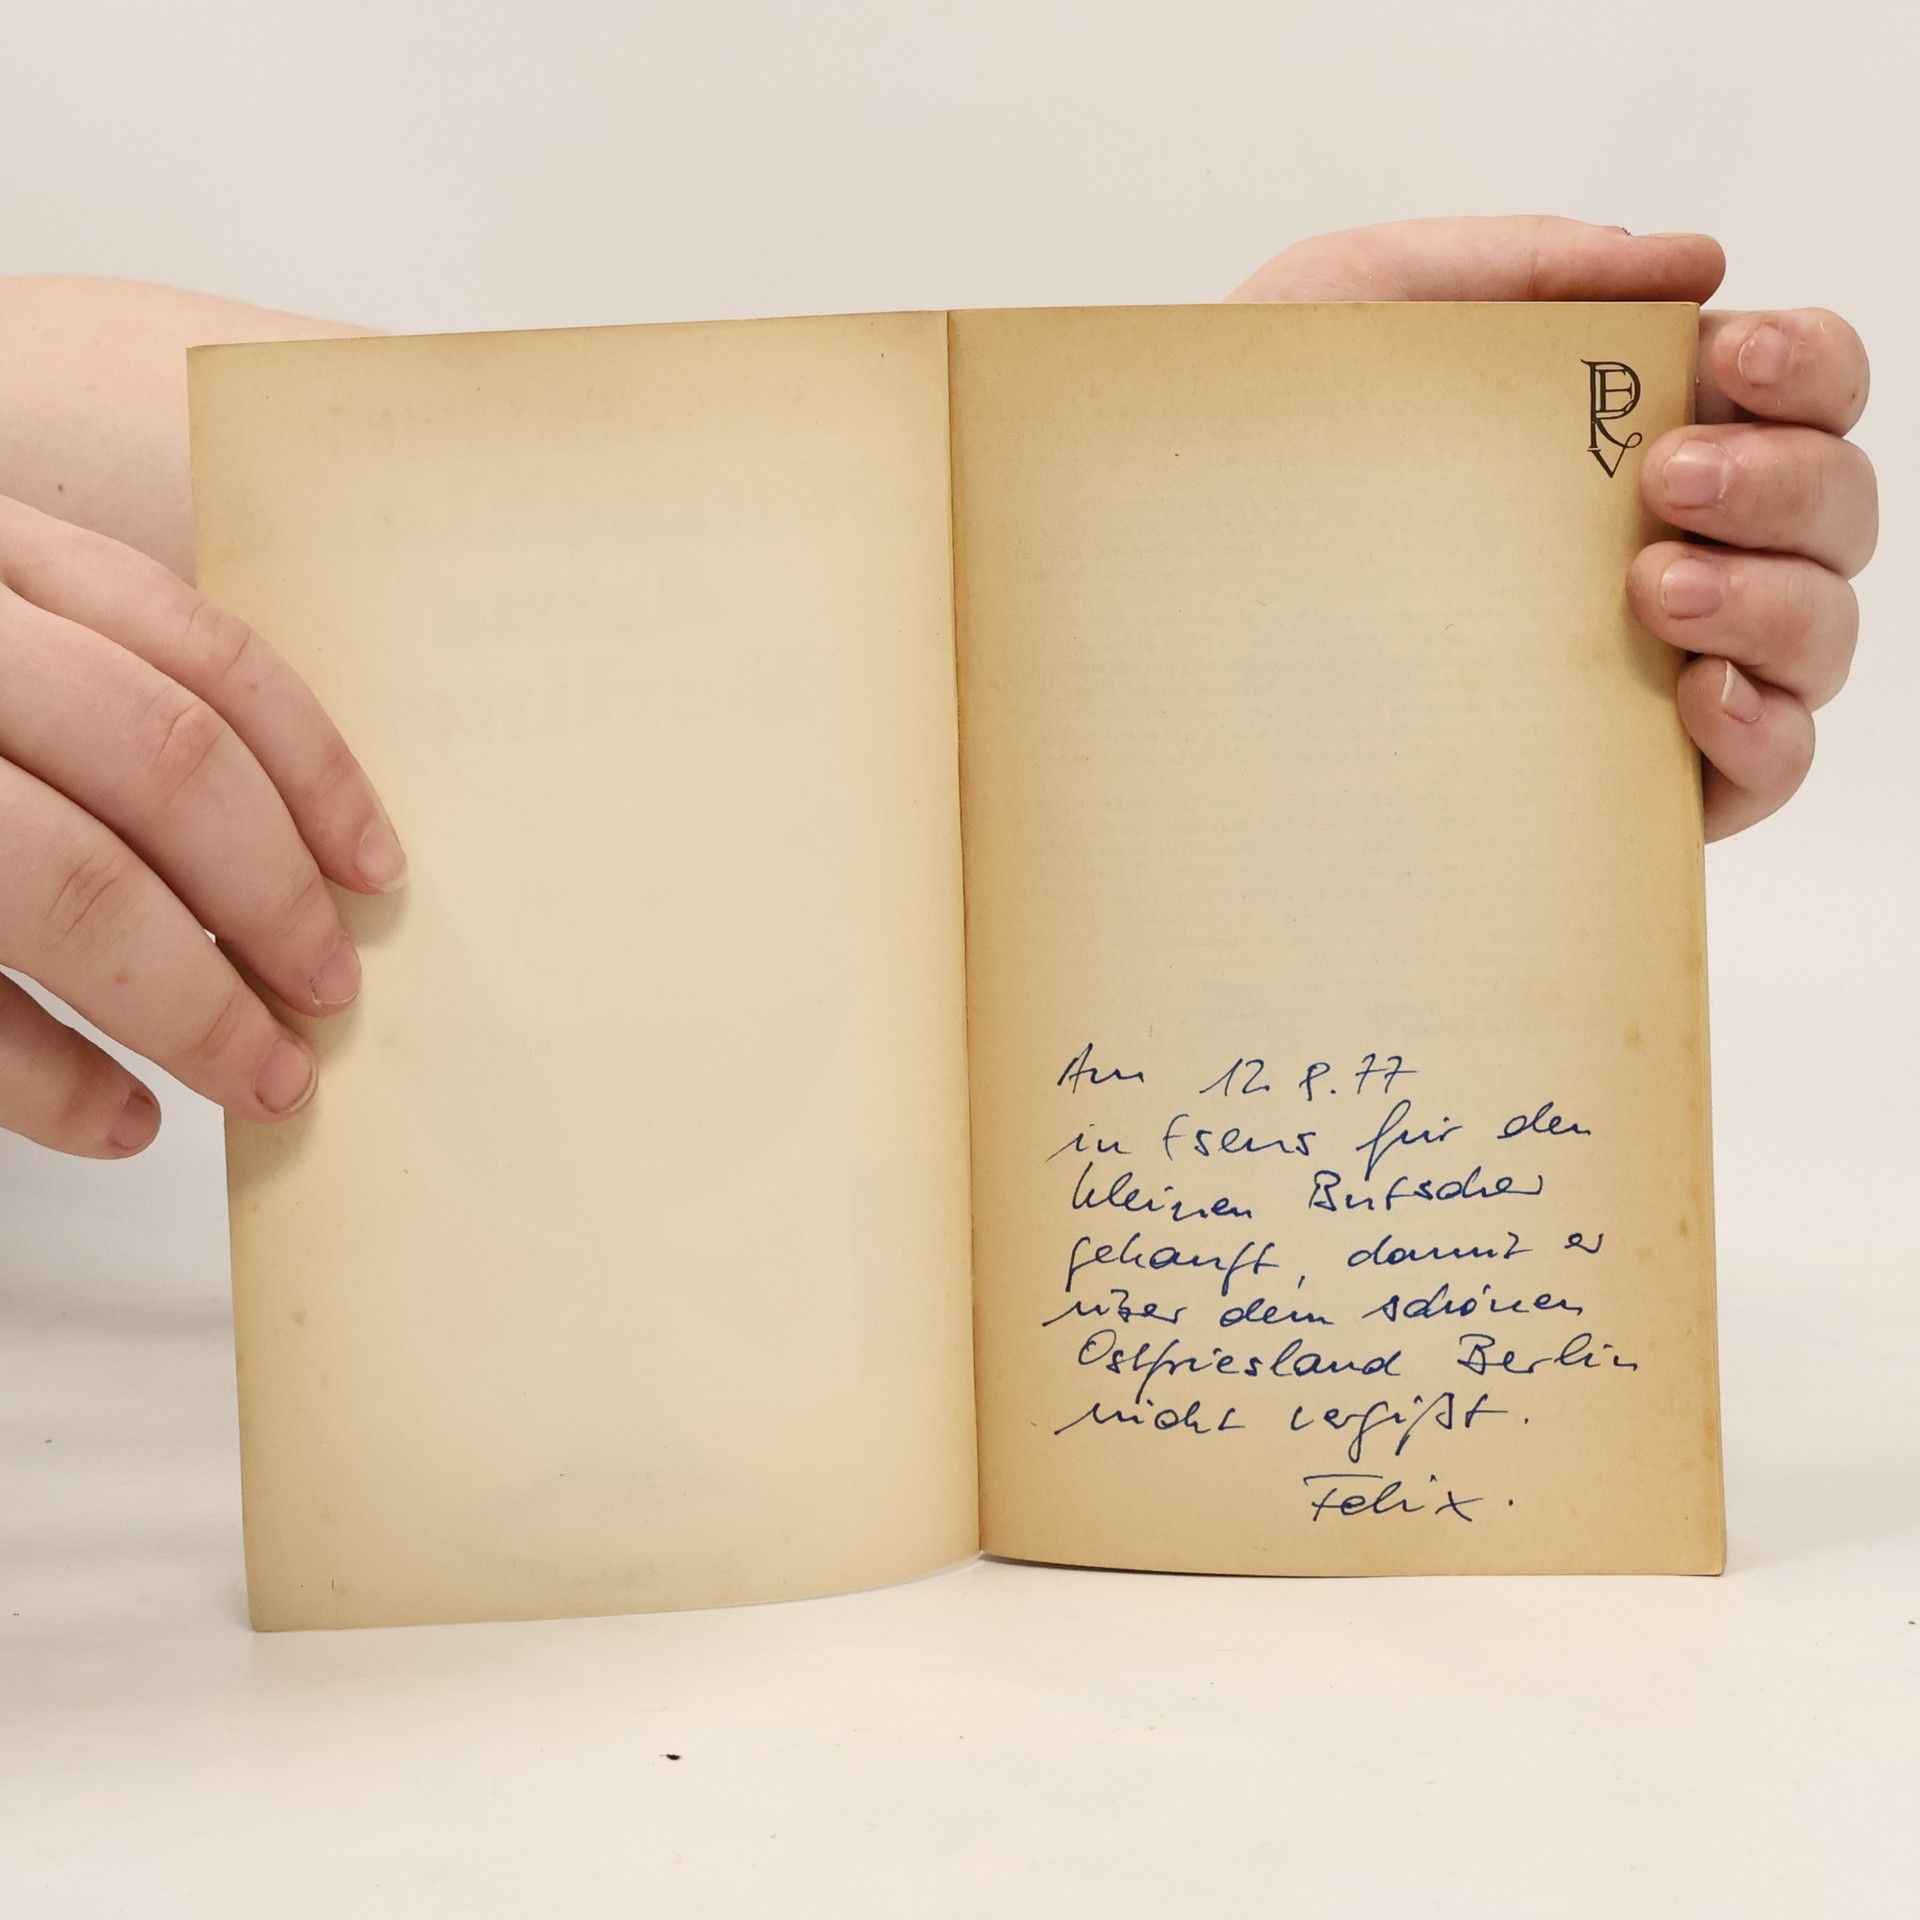 PERV
Am 12.8.77
in Esens für den
kleinen Butscher
gekauft, damit er
über dem schönen
Ostfriesland Berlin
nicht vergißt.
Felix.